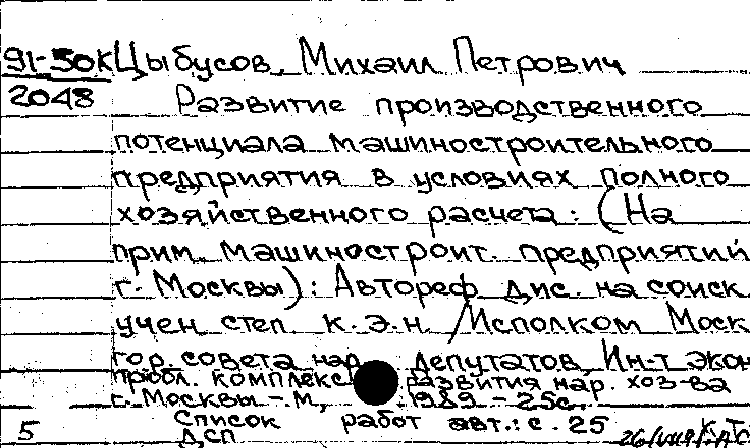 91-50к Цыбусов, Михаил Петрович
2048 Развитие производственного
потенциала машиностроительного
предприятия в условиях полного
хозяйственного расчета: (На
прим. машиностроит. предприятий
г. Москвы): Автореф. дис. на соиск
учен степ к.э.н. /Исполком Моск
гор. совета нар. депутатов, Ин-т экон
пробл. комплекс. развития нар. хоз-ва
г. Москвы - М., 1989 - 25с.
5 Список работ авт.: с. 25
ДСП